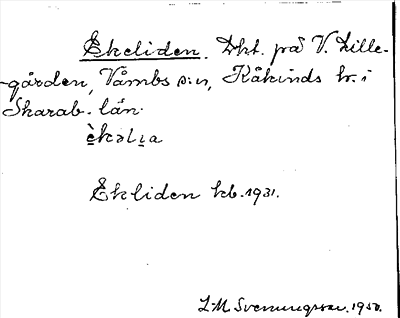 Ekeliden. Dkt. på V. Lille-
gården, Våmbs s:n, Kåkinds hr. i
Skarab. län.
èkəlɪa
Ekliden kb. 1931.
L-M. Svenungsson. 1950.